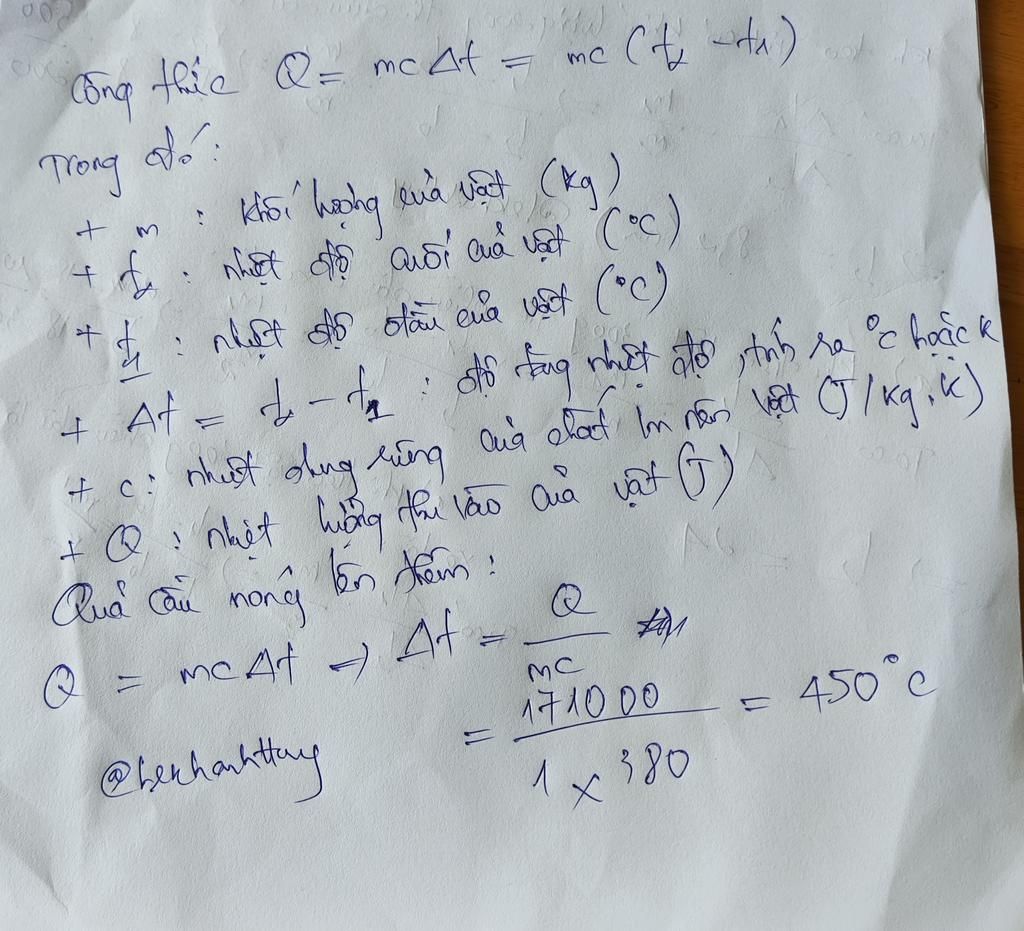 Công thức Q = mc Δt = mc (t₂ - t₁)
Trong đó:
+ m : khối lượng của vật (kg)
+ t₂ : nhiệt độ cuối của vật (°C)
+ t₁ : nhiệt độ đầu của vật (°C)
+ Δt = t₂ - t₁ : độ tăng nhiệt độ, tính ra °C hoặc K
+ c: nhiệt dung riêng của chất làm nên vật (J/kg.K)
+ Q : nhiệt lượng thu vào của vật (J)
Quả cầu nóng lên thêm :
Q = mc Δt => Δt = Q / mc
= 171000 / 1 x 380 = 450°C